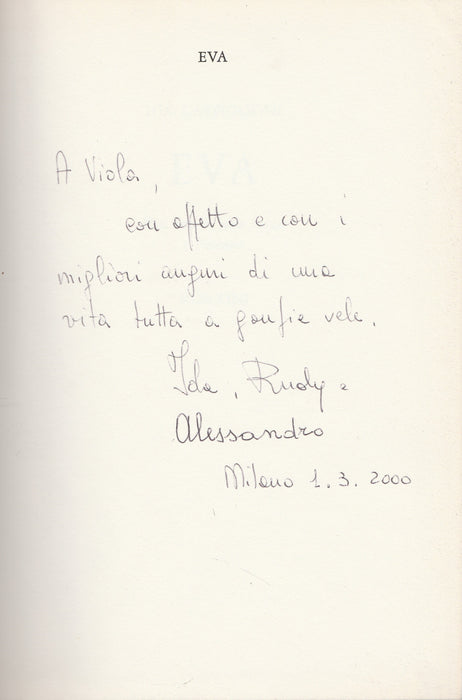 EVA
A Viola,
con affetto e con i
migliori auguri di una
vita tutta a gonfie vele.
Ida, Rudy e
Alessandro
Milano 1.3.2000